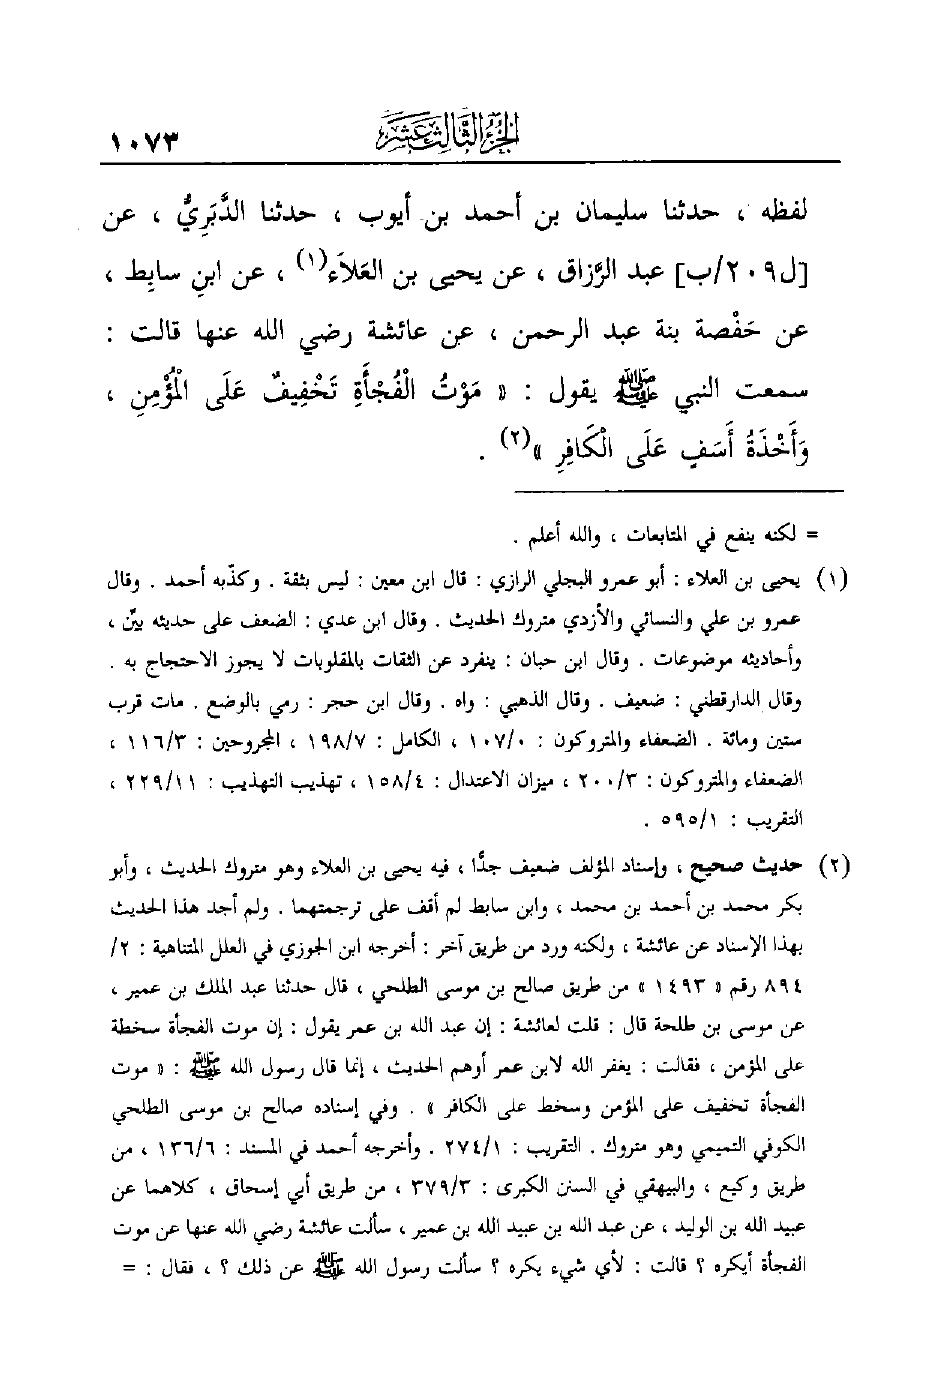 الجزء الثالث عشر
١٠٧٣
لفظه ، حدثنا سليمان بن أحمد بن أيوب ، حدثنا الدَّبَرِيُّ ، عن
[ل٢٠٩/ب] عبد الرَّزاق ، عن يحيى بن العَلاَء(١) ، عن ابنِ سابِط ،
عن حَفْصة بنة عبد الرحمن ، عن عائشة رضي الله عنها قالت :
سمعت النبي ﷺ يقول : « مَوْتُ الْفُجْأَةِ تَخْفِيفٌ عَلَى الْمُؤْمِنِ ،
وَأَخْذَةُ أَسَفٍ عَلَى الْكَافِرِ »(٢) .
= لكنه ينفع في المتابعات ، والله أعلم .
(١) يحيى بن العلاء : أبو عمرو البجلي الرازي : قال ابن معين : ليس بثقة . وكذّبه أحمد . وقال
عمرو بن علي والنسائي والأزدي متروك الحديث . وقال ابن عدي : الضعف على حديثه بيّن ،
وأحاديثه موضوعات . وقال ابن حبان : ينفرد عن الثقات بالمقلوبات لا يجوز الاحتجاج به .
وقال الدارقطني : ضعيف . وقال الذهبي : واه . وقال ابن حجر : رمي بالوضع . مات قرب
ستين ومائة . الضعفاء والمتروكون : ١٠٧/٠ ، الكامل : ١٩٨/٧ ، المجروحين : ١١٦/٣ ،
الضعفاء والمتروكون : ٢٠٠/٣ ، ميزان الاعتدال : ١٥٨/٤ ، تهذيب التهذيب : ٢٢٩/١١ ،
التقريب : ٥٩٥/١ .
(٢) حديث صحيح ، وإسناد المؤلف ضعيف جدًّا ، فيه يحيى بن العلاء وهو متروك الحديث ، وأبو
بكر محمد بن أحمد بن محمد ، وابن سابط لم أقف على ترجمتهما . ولم أجد هذا الحديث
بهذا الإسناد عن عائشة ، ولكنه ورد من طريق آخر : أخرجه ابن الجوزي في العلل المتناهية : ٢/
٨٩٤ رقم « ١٤٩٣ » من طريق صالح بن موسى الطلحي ، قال حدثنا عبد الملك بن عمير ،
عن موسى بن طلحة قال : قلت لعائشة : إن عبد الله بن عمر يقول : إن موت الفجأة سخطة
على المؤمن ، فقالت : يغفر الله لابن عمر أوهم الحديث ، إنما قال رسول الله ﷺ : « موت
الفجأة تخفيف على المؤمن وسخط على الكافر » . وفي إسناده صالح بن موسى الطلحي
الكوفي التميمي وهو متروك . التقريب : ٢٧٤/١ . وأخرجه أحمد في المسند : ١٣٦/٦ ، من
طريق وكيع ، والبيهقي في السنن الكبرى : ٣٧٩/٣ ، من طريق أبي إسحاق ، كلاهما عن
عبيد الله بن الوليد ، عن عبد الله بن عبيد الله بن عمير ، سألت عائشة رضي الله عنها عن موت
الفجأة أيكره ؟ قالت : لأي شيء يكره ؟ سألت رسول الله ﷺ عن ذلك ؟ ، فقال : =